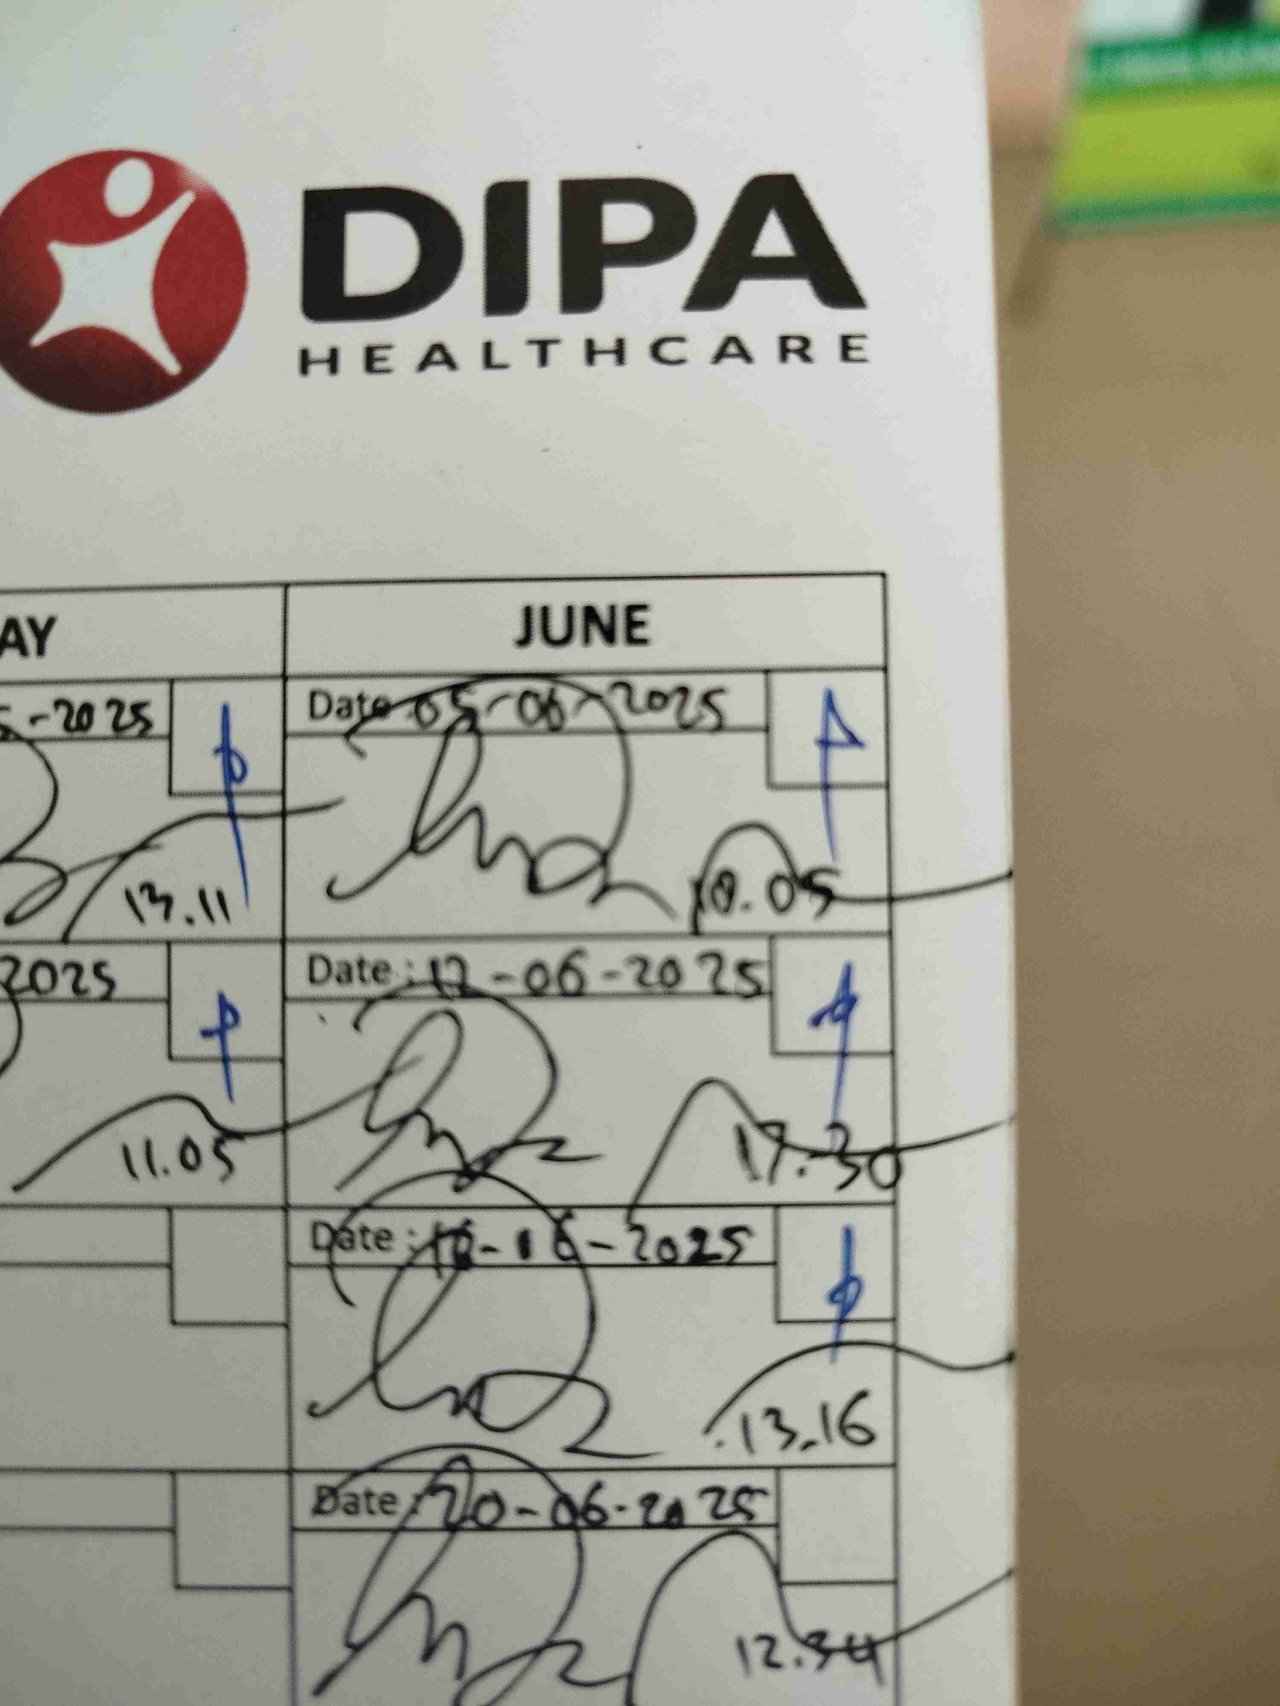 DIPA
HEALTHCARE
AY JUNE
-2025 Date 05-06-2025
13.11 18.05
2025 Date : 12-06-2025
11.05 17.30
Date : 2025
13.16
Date : 20-06-2025
12.34